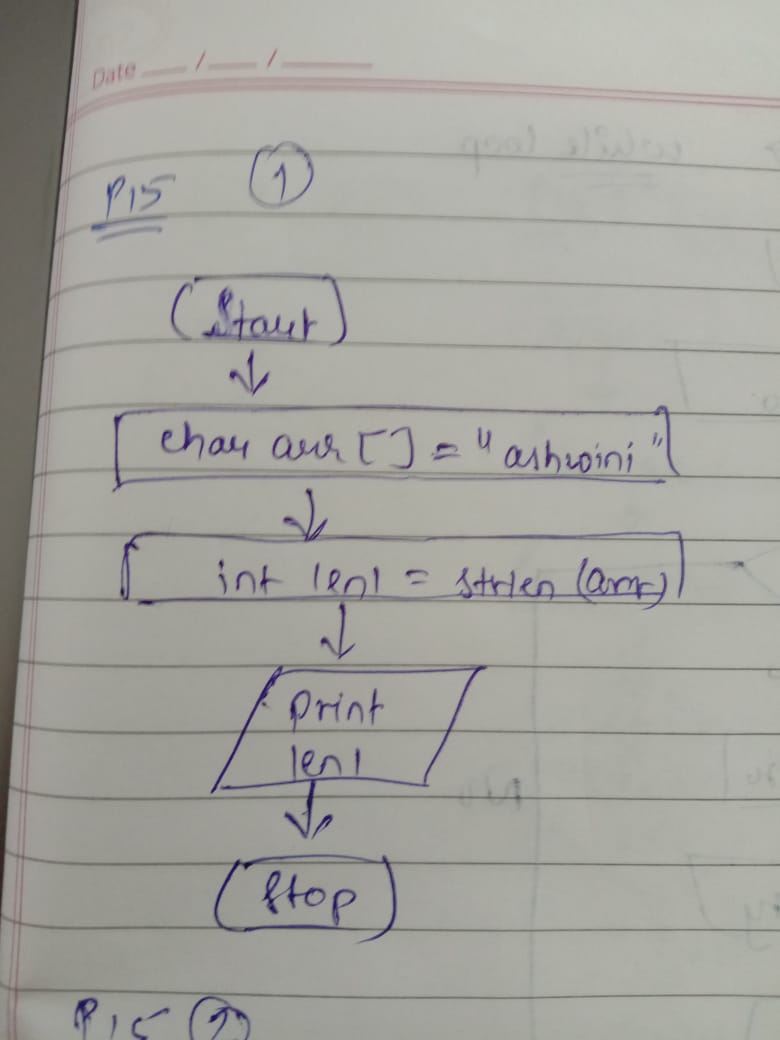 Date __/__/____
P15 ①
Start
char arr [] = "ashwini"
int len1 = strlen (arr)
print
len1
Stop
P15 ②